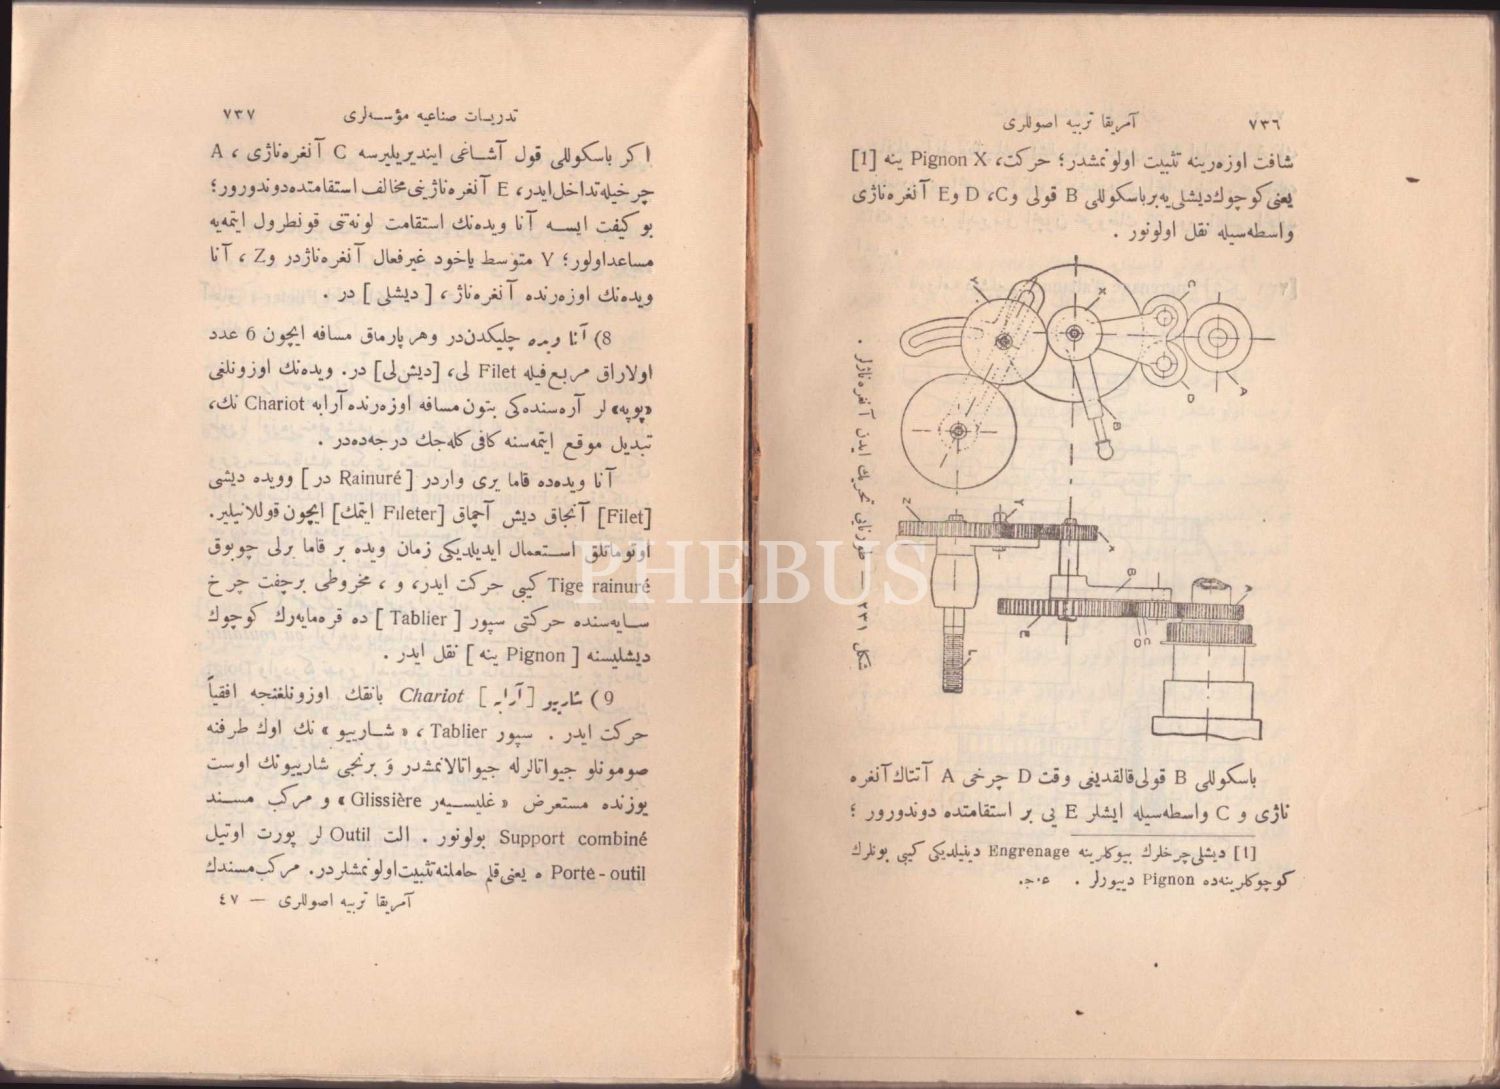 ٧٣٦ آمریقا تربیه اصوللری
شافت اوزه‌رینه تثبیت اولونمشدر؛ حرکت، Pignon X ینه [1]
یعنی کوچوك دیشلی یه برباسکوللی B قولی وD ،C وE آنغره‌ناژی
واسطه‌سیله نقل اولونور .
Y
X
C
A
D
B
Z
Y
X
B
A
E
DC
L
شکل ٢٣١ — طورنایی تحریك ایدن آنغره‌ناژلر .
باسکوللی B قولی قالقدیغی وقت D چرخی A آتناك آنغره
ناژی و C واسطه‌سیله ایشلر E یی بر استقامتده دوندورور ؛
[1] دیشلی چرخلرك بیوکلرینه Engrenage دینیلدیکی کیبی بونلرك
کوچوکلرینه‌ده Pignon دییورلر . ع.ج.
تدریسات صناعیه مؤسسه‌لری ٧٣٧
اکر باسکوللی قول آشاغی ایندیریلیرسه C آنغره‌ناژی ، A
چرخیله تداخل ایدر، E آنغره‌ناژینی مخالف استقامتده دوندورور؛
بو کیفت ایسه آنا ویده‌نك استقامت لونه‌تنی قونطرول ایتمه‌یه
مساعداولور؛ Y متوسط یاخود غیرفعال آنغره‌ناژدر وZ ، آنا
ویده‌نك اوزه‌رنده آنغره‌ناژ ، [ دیشلی ] در .
8) آنا ویده چلیکدن‌در وهر پارماق مسافه ایچون 6 عدد
اولاراق مربع فیله Filet لی، [دیش‌لی] در. ویده‌نك اوزونلغی
«پوپه» لر آره‌سنده‌کی بتون مسافه اوزه‌رنده آرابه Chariot نك،
تبدیل موقع ایتمه‌سنه کافی کله‌جك درجه‌ده‌در .
آنا ویده‌ده قاما یری واردر [ Rainuré در ] وویده دیشی
[Filet] آنجاق دیش آچماق [Fileter ایتمك] ایچون قوللانیلیر.
اوتوماتلق استعمال ایدیلدیکی زمان ویده بر قاما برلی چوبوق
Tige rainuré کیبی حرکت ایدر، و ، مخروطی برچفت چرخ
سایه‌سنده حرکتی سپور [ Tablier ] ده قره‌مایه‌رك کوچوك
دیشلیسنه [ Pignon ینه ] نقل ایدر .
9) شاریو [ آرابه ] Chariot بانقك اوزونلغنجه افقیاً
حرکت ایدر . سپور Tablier ، « شارییو » نك اوك طرفنه
صومونلو جیواتالرله جیواتالانمشدر وَ برنجی شارییونك اوست
یوزنده مستعرض « غلیسیه‌ر Glissière » و مرکب مسند
Support combiné بولونور . الت Outil لر پورت اوتیل
Porte - outil ه یعنی قلم حاملنه تثبیت اولونمشلردر. مرکب مسندك
آمریقا تربیه اصوللری — ٤٧
PHEBUS